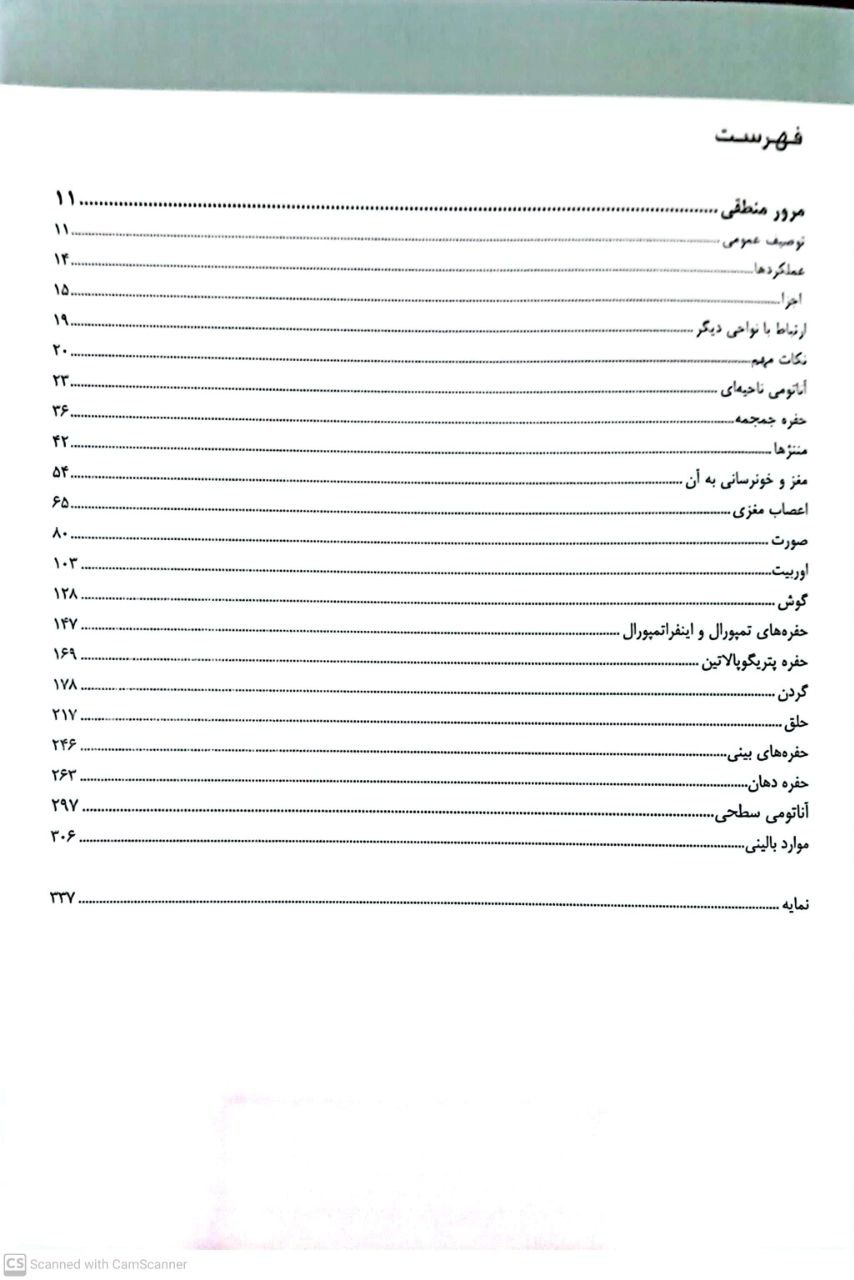 فهرست
مرور منطقی ۱۱
توصیف عمومی ۱۱
عملکردها ۱۴
اجزا ۱۵
ارتباط با نواحی دیگر ۱۹
نکات مهم ۲۰
آناتومی ناحیه‌ای ۲۳
حفره جمجمه ۳۶
مننژها ۴۲
مغز و خونرسانی به آن ۵۴
اعصاب مغزی ۶۵
صورت ۸۰
اوربیت ۱۰۳
گوش ۱۲۸
حفره‌های تمپورال و اینفراتمپورال ۱۴۷
حفره پتریگوپالاتین ۱۶۹
گردن ۱۷۸
حلق ۲۱۷
حفره‌های بینی ۲۴۶
حفره دهان ۲۶۳
آناتومی سطحی ۲۹۷
موارد بالینی ۳۰۶
نمایه ۳۳۷
CS Scanned with CamScanner